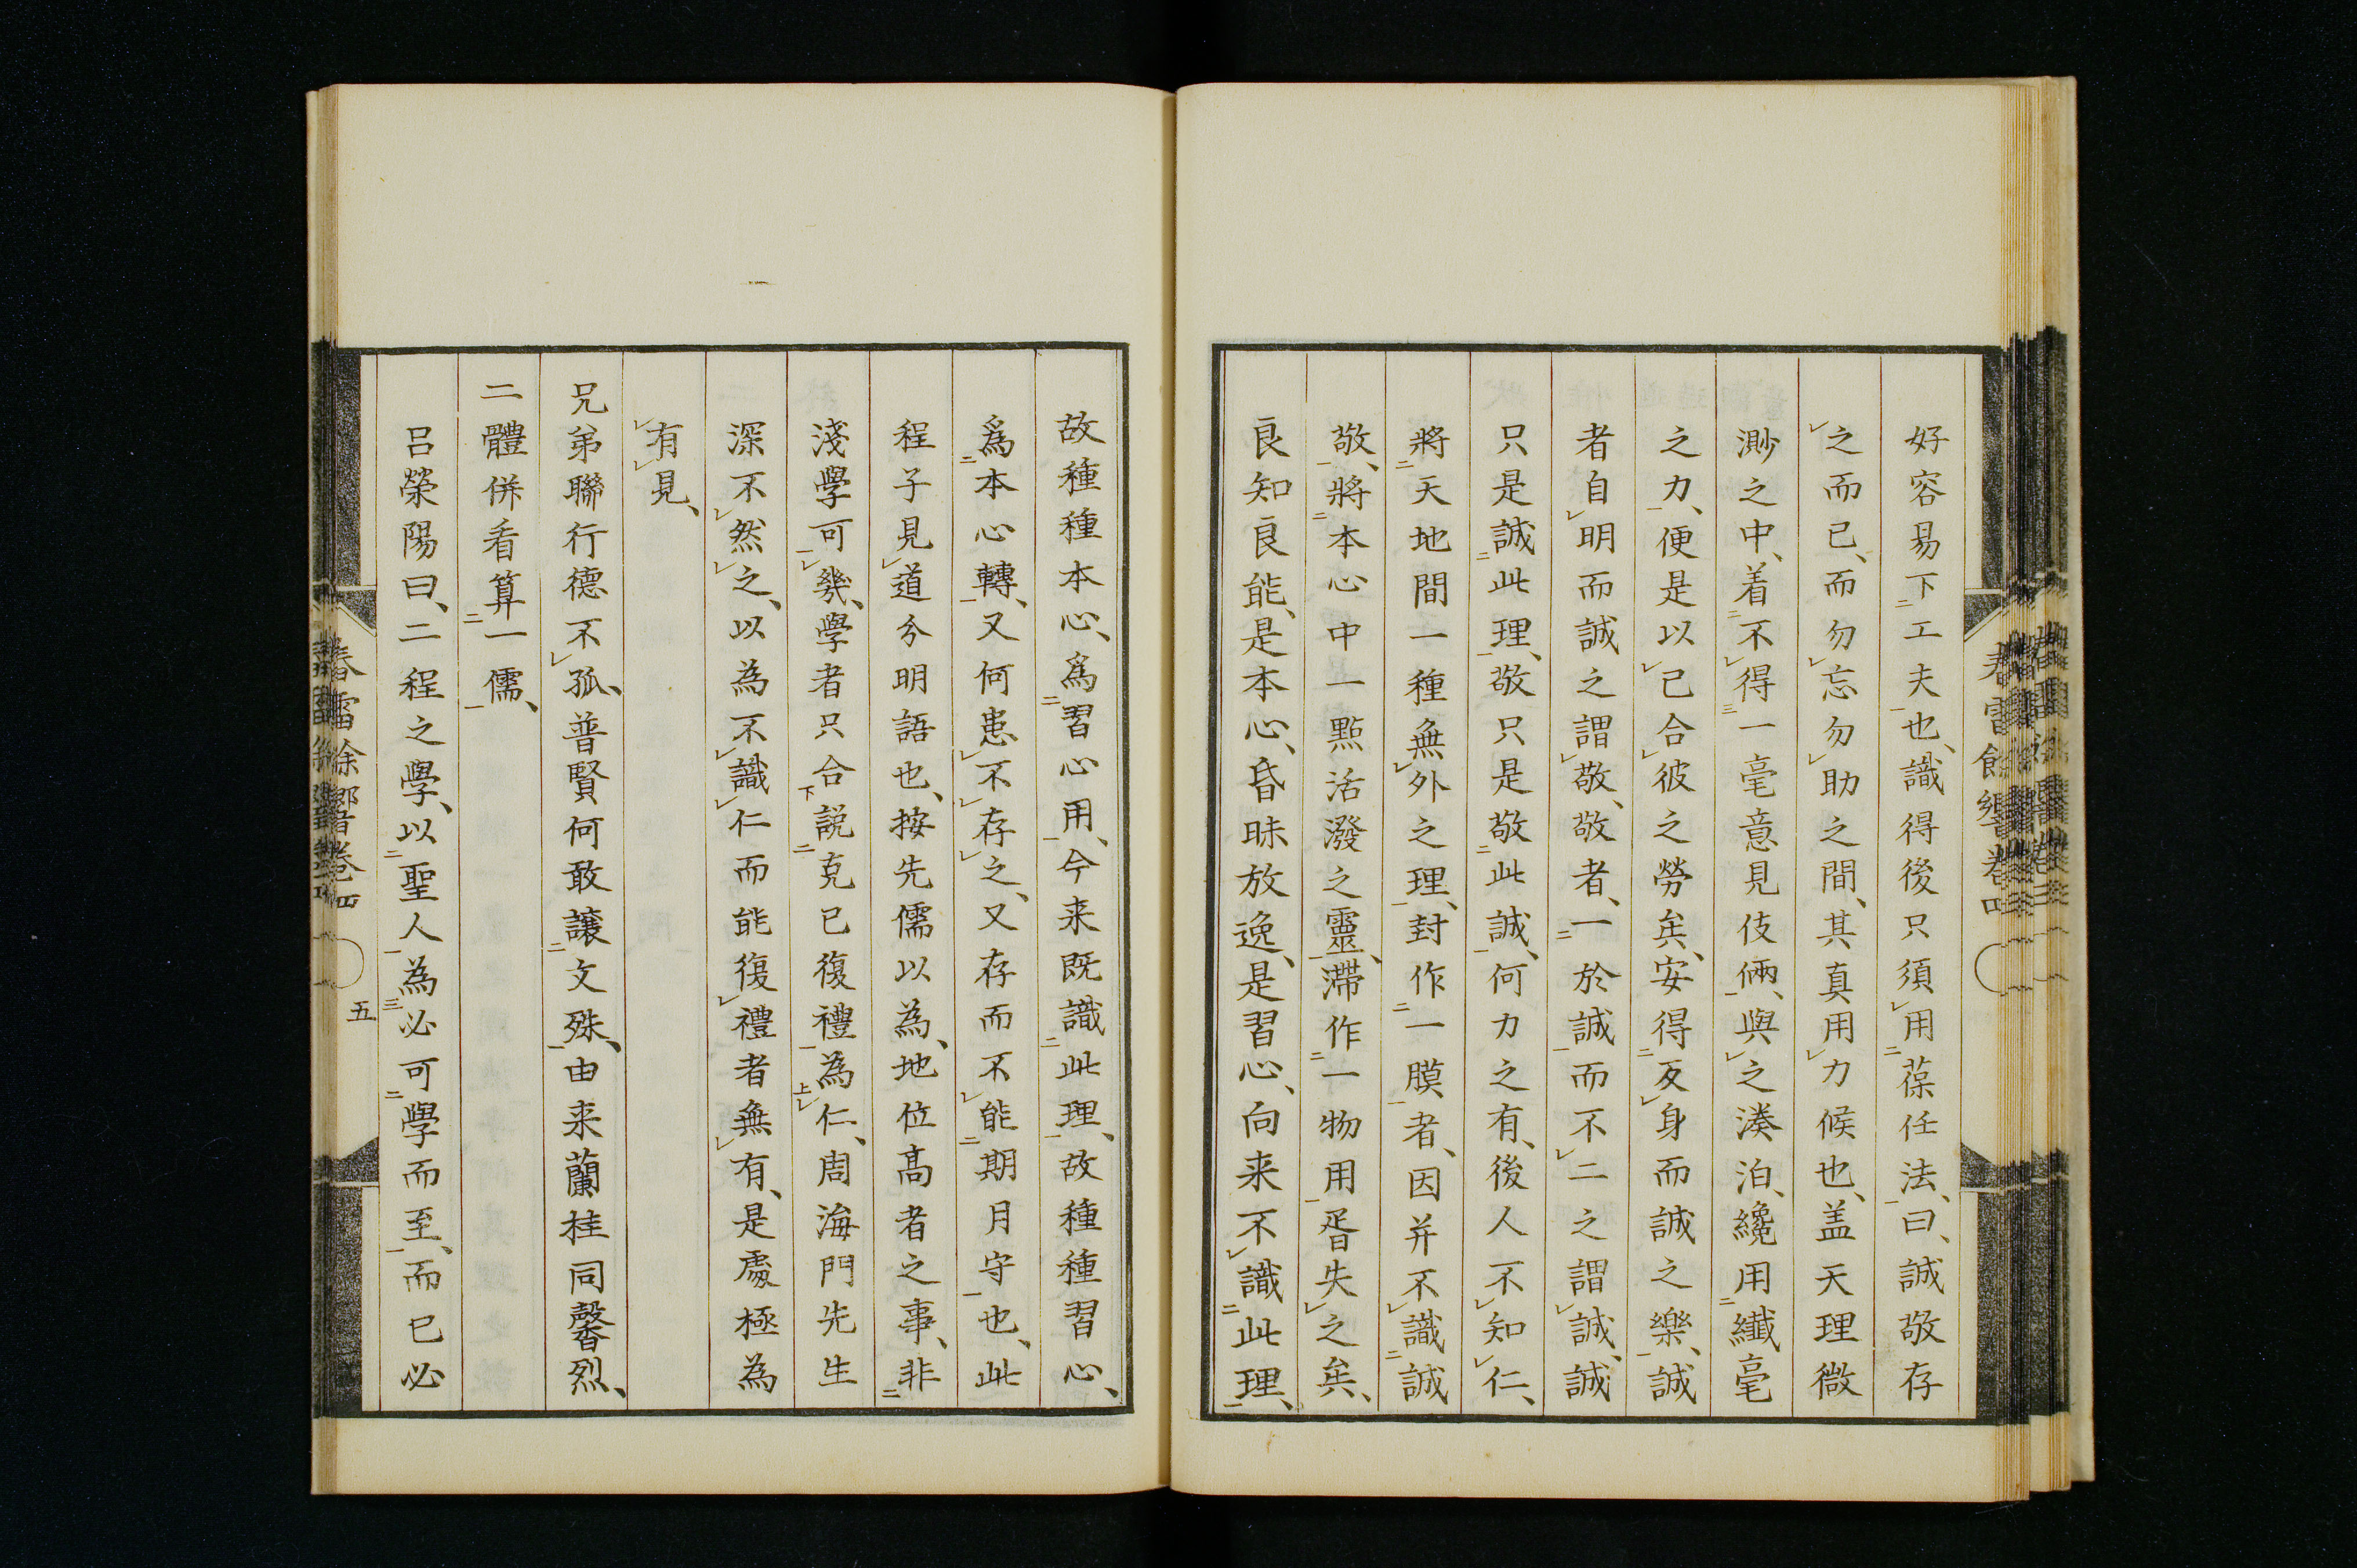 好容易下工夫也、識得後只須用葆任法、曰、誠敬存
之而已、而勿忘勿助之間、其真用力候也、盖天理微
渺之中、着不得一毫意見伎倆、與之湊泊、纔用纎毫
之力、便是以已合彼之勞矣、安得反身而誠之樂、誠
者自明而誠之謂、敬、敬者、一於誠而不二之謂、誠、誠
只是誠此理、敬只是敬此誠、何力之有、後人不知仁、
將天地間一種無外之理、封作一膜者、因并不識誠
敬、將本心中一點活潑之靈、滯作一物用胥失之矣、
良知良能、是本心、昏昧放逸、是習心、向来不識此理、
故種種本心、爲習心用、今来既識此理、故種種習心、
爲本心轉、又何患不存之、又存而不能期月守也、此
程子見道分明語也、按先儒以為、地位高者之事、非
淺學可幾、學者只合說克已復禮為仁、周海門先生
深不然之、以為不識仁而能復禮者無有、是處極為
有見、
兄弟聯行德不孤、普賢何敢讓文殊、由来蘭桂同馨烈、
二體併看算一儒、
呂榮陽曰、二程之學、以聖人為必可學而至、而已必
春雷餘響卷四
五